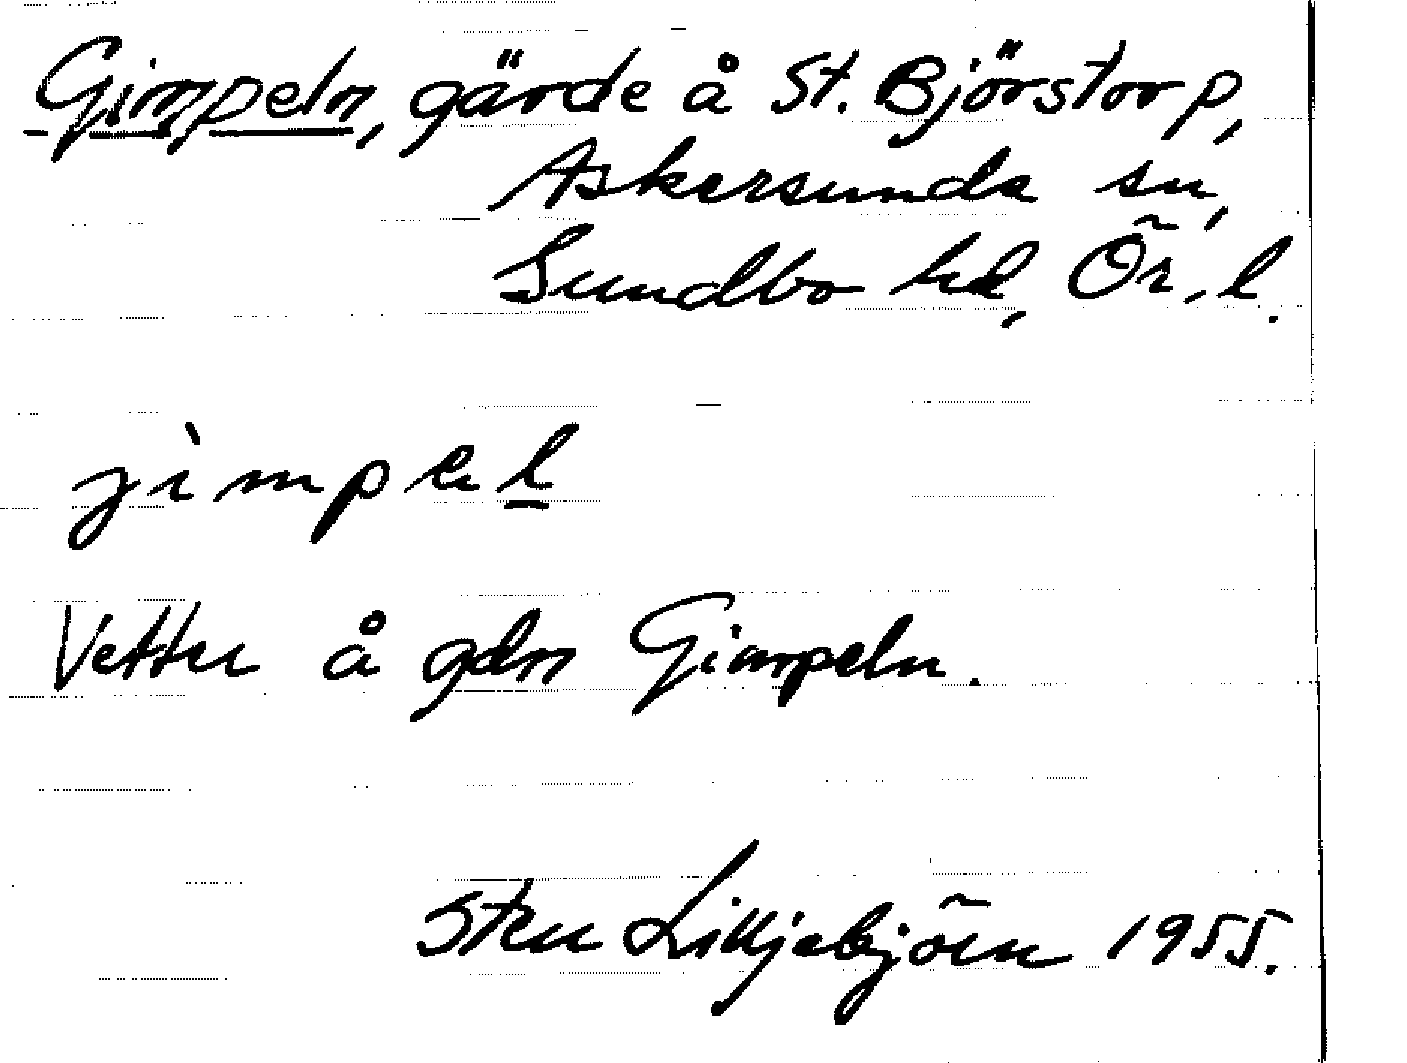 Gimpeln, gärde å St. Björstorp,
Askersunds sn,
Sundbo hd, Ör. l.
jìmpel
Vetter å gdn Gimpeln.
Sten Lilljebjörn 1955.